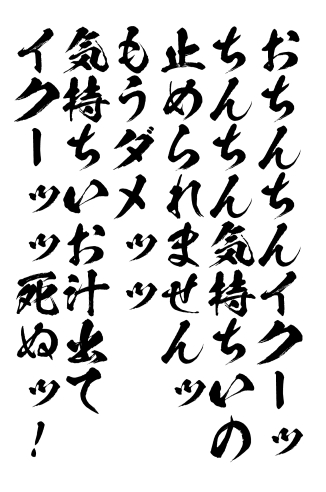 おちんちんイクーッ
ちんちん気持ちいの
止められませんッ
もうダメッッ
気持ちいお汁出て
イクーッッ死ぬッ！